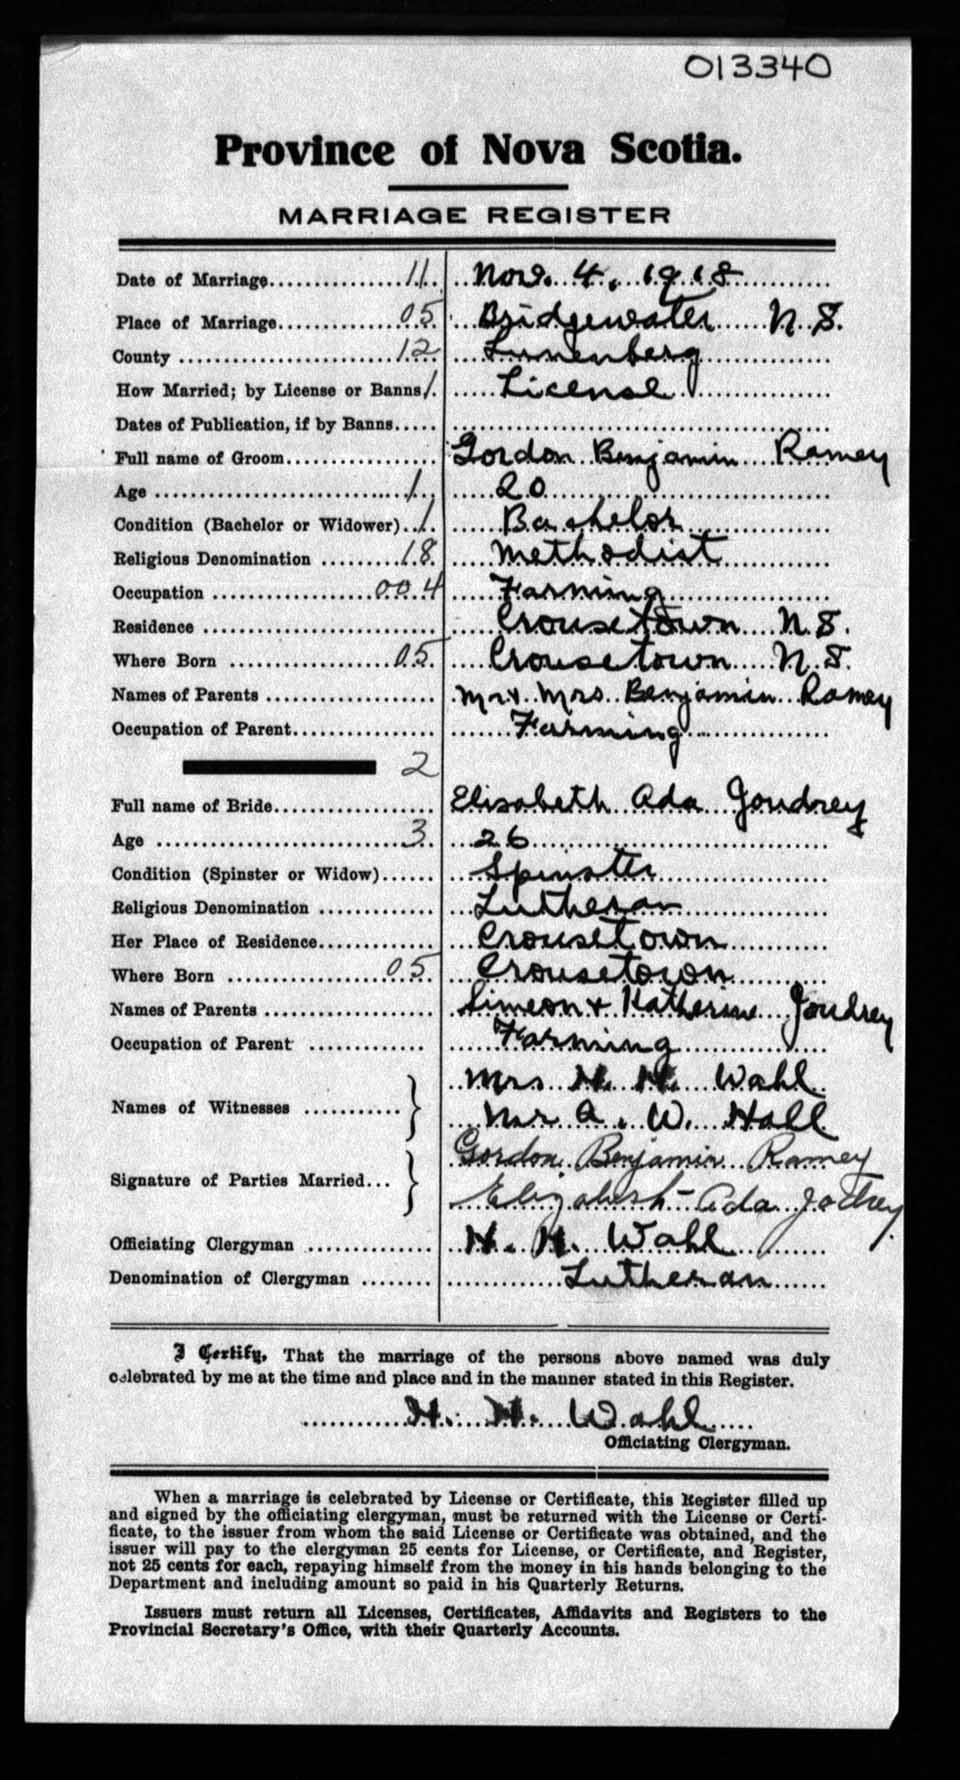 013340
Province of Nova Scotia.
MARRIAGE REGISTER
Date of Marriage 11 Nov. 4, 1918
Place of Marriage 05 Bridgewater N.S.
County 12 Lunenberg
How Married; by License or Banns 1 License
Dates of Publication, if by Banns
Full name of Groom Gordon Benjamin Ramey
Age 1 20
Condition (Bachelor or Widower) 1 Bachelor
Religious Denomination 18 Methodist
Occupation 004 Farming
Residence Crousetown N.S.
Where Born 05 Crousetown N.S.
Names of Parents Mr + Mrs Benjamin Ramey
Occupation of Parent Farming
2
Full name of Bride Elisabeth Ada Joudrey
Age 3 26
Condition (Spinster or Widow) Spinster
Religious Denomination Lutheran
Her Place of Residence Crousetown
Where Born 05 Crousetown
Names of Parents Simeon + Katherine Joudrey
Occupation of Parent Farming
Mrs H. H. Wahl
Names of Witnesses
Mr A. W. Hall
Gordon Benjamin Ramey
Signature of Parties Married
Elizabeth Ada Jodrey
Officiating Clergyman H. H. Wahl
Denomination of Clergyman Lutheran
I Certify, That the marriage of the persons above named was duly
celebrated by me at the time and place and in the manner stated in this Register.
H. H. Wahl
Officiating Clergyman.
When a marriage is celebrated by License or Certificate, this Register filled up
and signed by the officiating clergyman, must be returned with the License or Certi-
ficate, to the issuer from whom the said License or Certificate was obtained, and the
issuer will pay to the clergyman 25 cents for License, or Certificate, and Register,
not 25 cents for each, repaying himself from the money in his hands belonging to the
Department and including amount so paid in his Quarterly Returns.
Issuers must return all Licenses, Certificates, Affidavits and Registers to the
Provincial Secretary's Office, with their Quarterly Accounts.